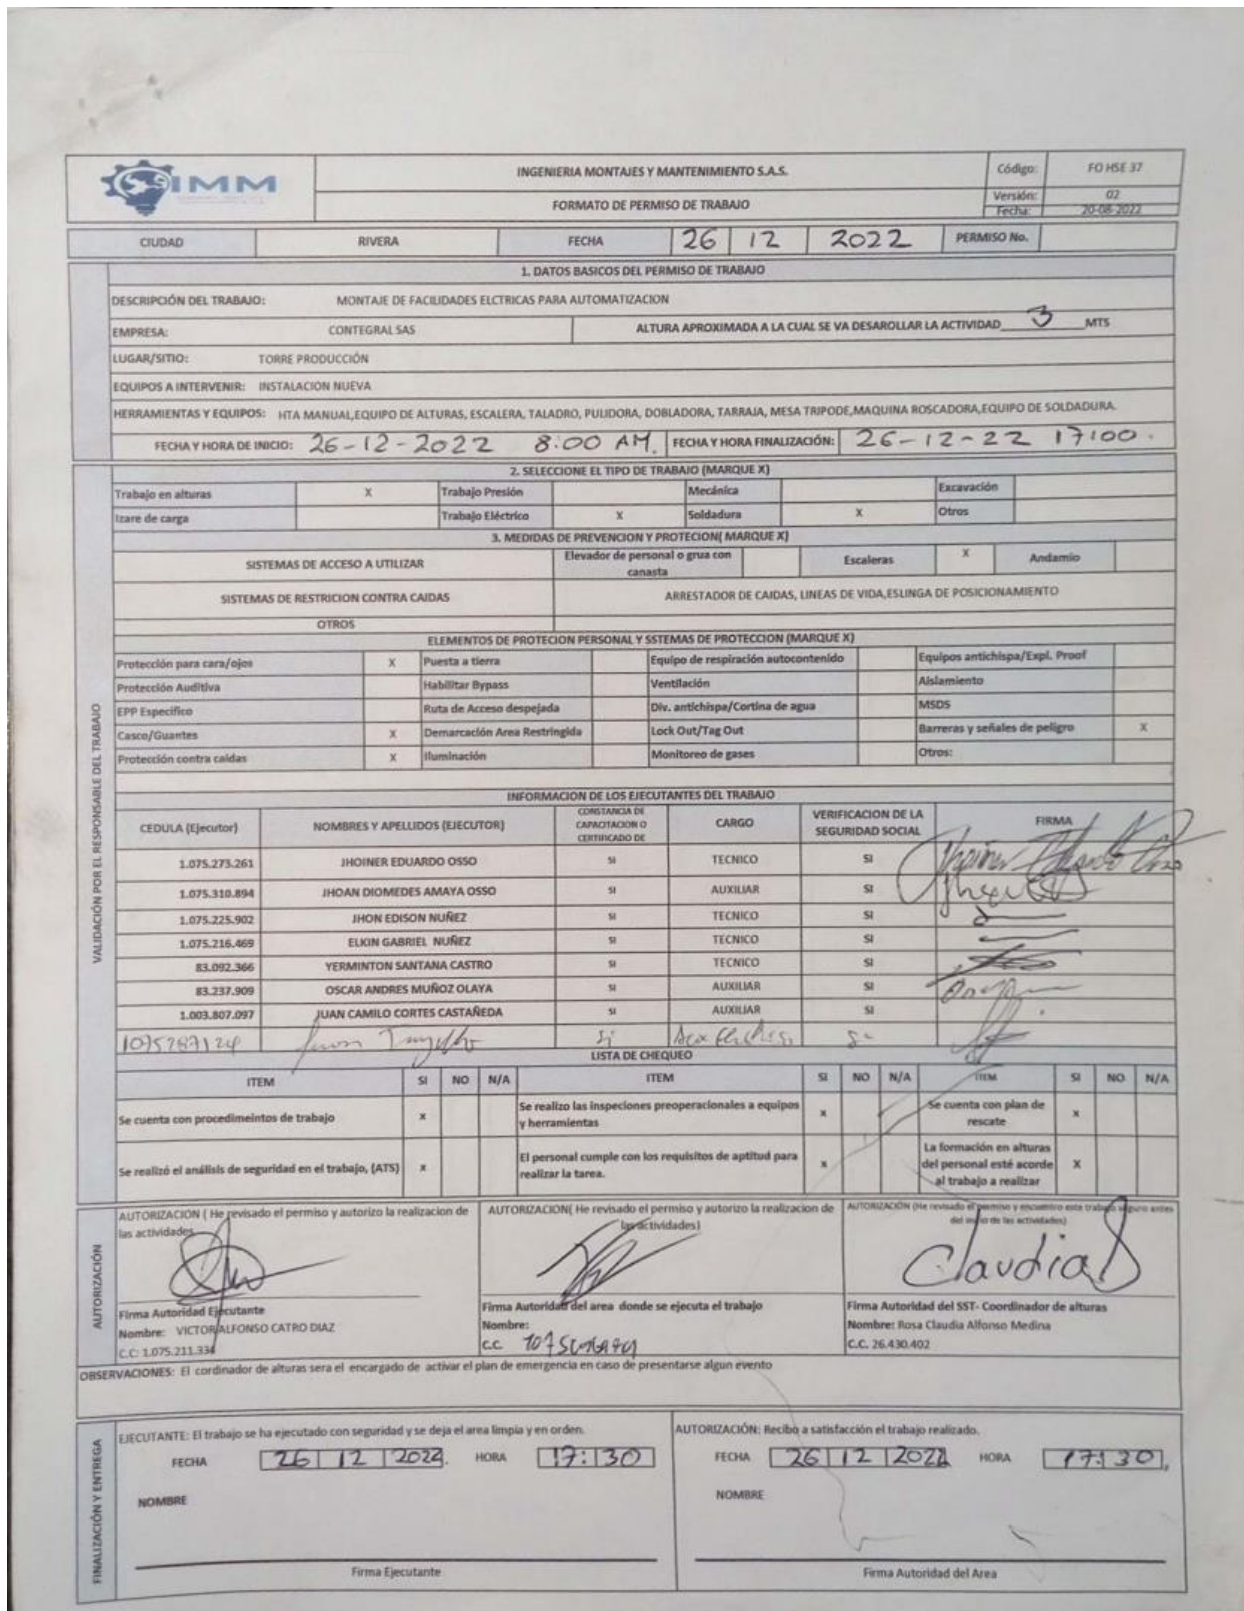 IMM
INGENIERIA MONTAJES Y MANTENIMIENTO S.A.S.
Código: FO HSE 37
FORMATO DE PERMISO DE TRABAJO
Versión: 02
Fecha: 20-08-2022
CIUDAD RIVERA FECHA 26 12 2022 PERMISO No.
1. DATOS BASICOS DEL PERMISO DE TRABAJO
DESCRIPCIÓN DEL TRABAJO: MONTAJE DE FACILIDADES ELCTRICAS PARA AUTOMATIZACION
EMPRESA: CONTEGRAL SAS ALTURA APROXIMADA A LA CUAL SE VA DESAROLLAR LA ACTIVIDAD 3 MTS
LUGAR/SITIO: TORRE PRODUCCIÓN
EQUIPOS A INTERVENIR: INSTALACION NUEVA
HERRAMIENTAS Y EQUIPOS: HTA MANUAL,EQUIPO DE ALTURAS, ESCALERA, TALADRO, PULIDORA, DOBLADORA, TARRAJA, MESA TRIPODE,MAQUINA ROSCADORA,EQUIPO DE SOLDADURA.
FECHA Y HORA DE INICIO: 26-12-2022 8:00 AM. FECHA Y HORA FINALIZACIÓN: 26-12-22 17:00.
2. SELECCIONE EL TIPO DE TRABAJO (MARQUE X)
Trabajo en alturas X Trabajo Presión Mecánica Excavación
Izare de carga Trabajo Eléctrico X Soldadura X Otros
3. MEDIDAS DE PREVENCION Y PROTECION( MARQUE X)
SISTEMAS DE ACCESO A UTILIZAR Elevador de personal o grua con canasta Escaleras X Andamio
SISTEMAS DE RESTRICION CONTRA CAIDAS ARRESTADOR DE CAIDAS, LINEAS DE VIDA,ESLINGA DE POSICIONAMIENTO
OTROS
ELEMENTOS DE PROTECION PERSONAL Y SSTEMAS DE PROTECCION (MARQUE X)
Protección para cara/ojos X Puesta a tierra Equipo de respiración autocontenido Equipos antichispa/Expl. Proof
Protección Auditiva Habilitar Bypass Ventilación Aislamiento
EPP Especifico Ruta de Acceso despejada Div. antichispa/Cortina de agua MSDS
Casco/Guantes X Demarcación Area Restringida Lock Out/Tag Out Barreras y señales de peligro X
Protección contra caídas X Iluminación Monitoreo de gases Otros:
VALIDACIÓN POR EL RESPONSABLE DEL TRABAJO
INFORMACION DE LOS EJECUTANTES DEL TRABAJO
CEDULA (Ejecutor) NOMBRES Y APELLIDOS (EJECUTOR) CONSTANCIA DE CAPACITACION O CERTIFICADO DE CARGO VERIFICACION DE LA SEGURIDAD SOCIAL FIRMA
1.075.273.261 JHOINER EDUARDO OSSO SI TECNICO SI
1.075.310.894 JHOAN DIOMEDES AMAYA OSSO SI AUXILIAR SI
1.075.225.902 JHON EDISON NUÑEZ SI TECNICO SI
1.075.216.469 ELKIN GABRIEL NUÑEZ SI TECNICO SI
83.092.366 YERMINTON SANTANA CASTRO SI TECNICO SI
83.237.909 OSCAR ANDRES MUÑOZ OLAYA SI AUXILIAR SI
1.003.807.097 JUAN CAMILO CORTES CASTAÑEDA SI AUXILIAR SI
1075287124 Si
LISTA DE CHEQUEO
ITEM SI NO N/A ITEM SI NO N/A ITEM SI NO N/A
Se cuenta con procedimeintos de trabajo x Se realizo las inspeciones preoperacionales a equipos y herramientas x Se cuenta con plan de rescate x
Se realizó el análisis de seguridad en el trabajo, (ATS) x El personal cumple con los requisitos de aptitud para realizar la tarea. x La formación en alturas del personal esté acorde al trabajo a realizar X
AUTORIZACIÓN
AUTORIZACION ( He revisado el permiso y autorizo la realizacion de las actividades
AUTORIZACION( He revisado el permiso y autorizo la realizacion de las actividades)
AUTORIZACIÓN (He revisado el permiso y encuentro este trabajo seguro antes del inicio de las actividades)
Claudia
Firma Autoridad Ejecutante
Nombre: VICTOR ALFONSO CATRO DIAZ
C.C: 1.075.211.334
Firma Autoridad del area donde se ejecuta el trabajo
Nombre:
C.C
Firma Autoridad del SST- Coordinador de alturas
Nombre: Rosa Claudia Alfonso Medina
C.C. 26.430.402
OBSERVACIONES: El cordinador de alturas sera el encargado de activar el plan de emergencia en caso de presentarse algun evento
FINALIZACIÓN Y ENTREGA
EJECUTANTE: El trabajo se ha ejecutado con seguridad y se deja el area limpia y en orden.
FECHA 26 12 2022. HORA 17:30
NOMBRE
Firma Ejecutante
AUTORIZACIÓN: Recibo a satisfacción el trabajo realizado.
FECHA 26 12 2022 HORA 17:30,
NOMBRE
Firma Autoridad del Area